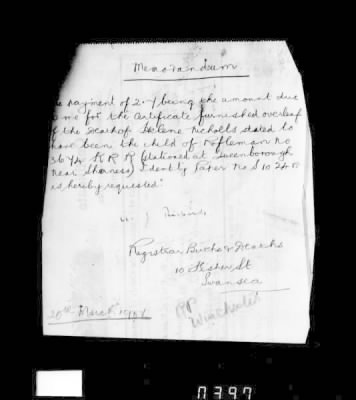 Memorandum
payment of 2-/ being the amount due
me for the Certificate furnished overleaf
of the Death of Helene Nicholls stated to
have been the child of Rifleman No
3644 K R R (stationed at Queenborough
near Sheerness) Identity Paper No S 10
is hereby requested.
Registrar Births & Deaths
10 Fisher St
Swansea
20th March
RP
Winchester
0397